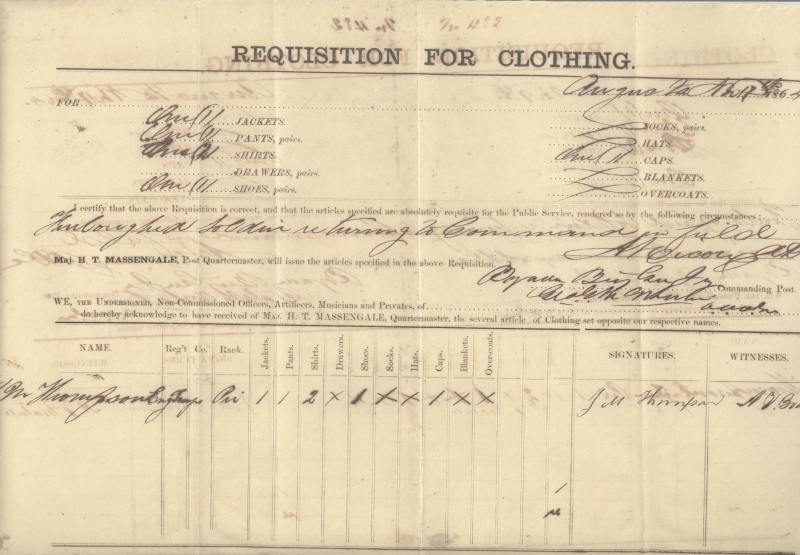 REQUISITION FOR CLOTHING.
Augusta
FOR
One (1) JACKETS.
One (1) PANTS, pairs.
SHIRTS.
DRAWERS, pairs.
One (1) SHOES, pairs.
SOCKS, pairs.
HATS.
One (1) CAPS.
BLANKETS.
OVERCOATS.
I certify that the above Requisition is correct, and that the articles specified are absolutely requisite for the Public Service, rendered so by the following circumstances:
Furloughed soldier returning to Command in field
MAJ. H. T. MASSENGALE, Post Quartermaster, will issue the articles specified in the above Requisition.
Commanding Post.
WE, THE UNDERSIGNED, Non-Commissioned Officers, Artificers, Musicians and Privates, of
do hereby acknowledge to have received of MAJ. H. T. MASSENGALE, Quartermaster, the several article of Clothing set opposite our respective names.
NAME. Reg't Co. Rank. Jackets. Pants. Shirts. Drawers. Shoes. Socks. Hats. Caps. Blankets. Over-coats. SIGNATURES. WITNESSES.
Thompson Pri 1 1 2 x 1 x x 1 x x J M Thompson